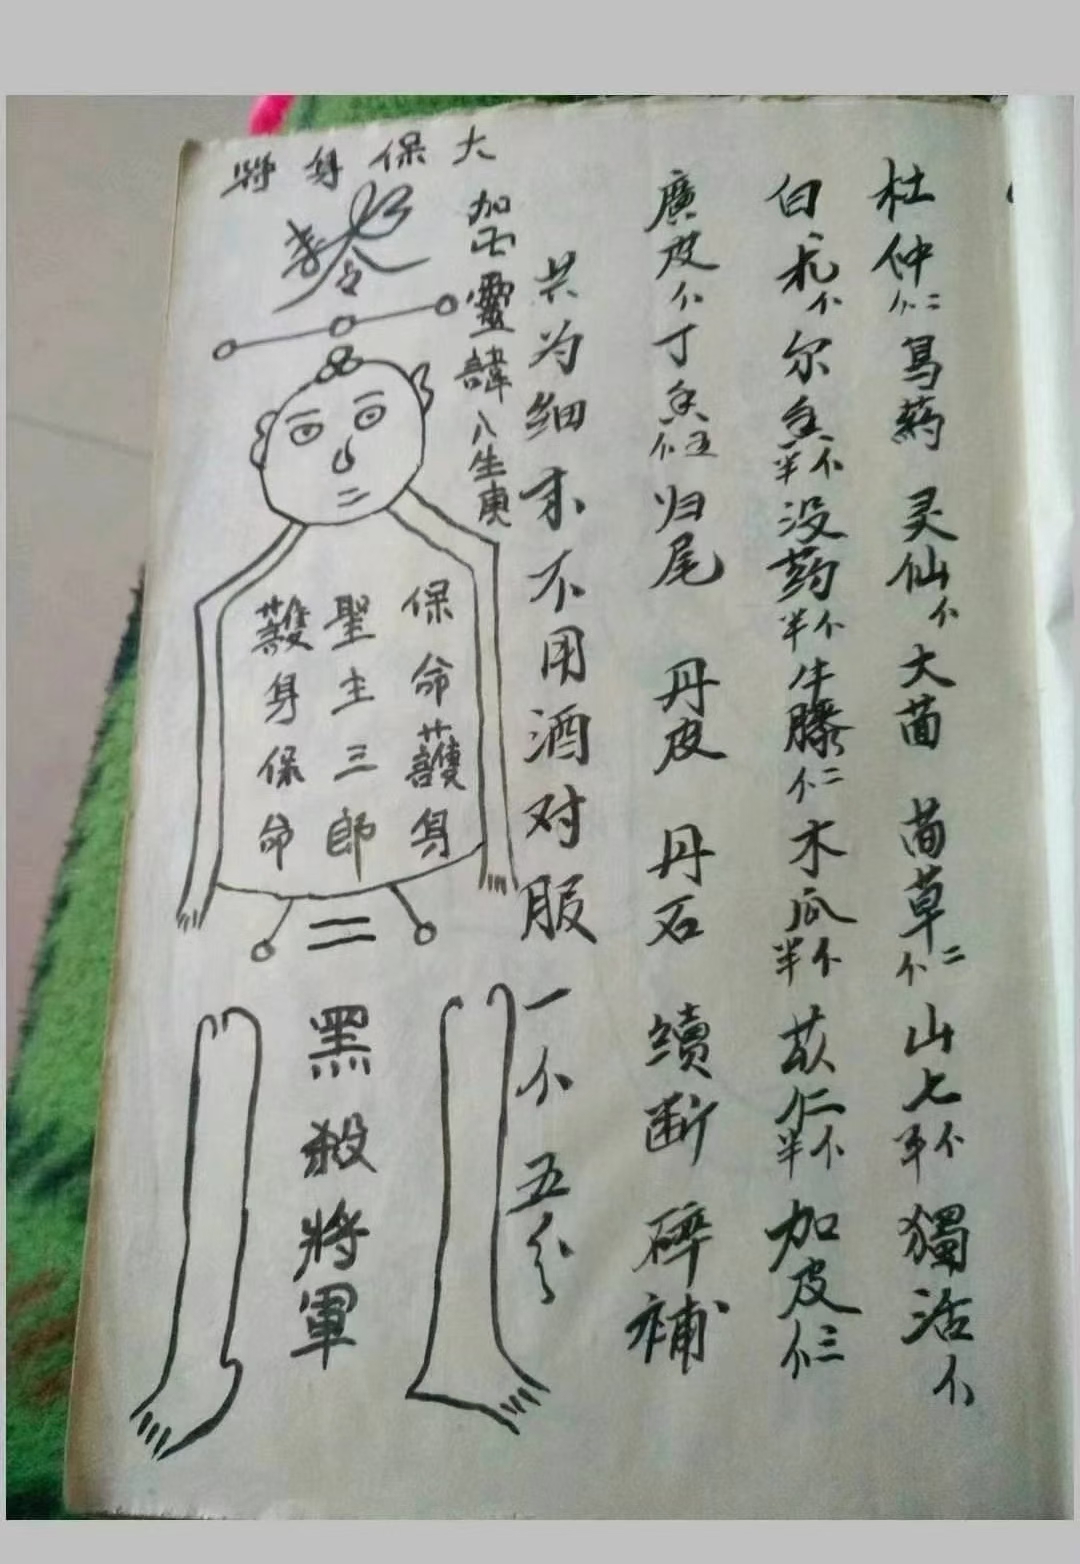 杜仲 仁二 烏药 灵仙 个 大茴 茴草 个二 山七 半个 獨活 个
白朮 个 尔魚 半个 没药 半个 牛膝 仁二 木瓜 半个 苡仁 半个 加皮 仁三
廣皮 个 丁魚 仁五 归尾 丹皮 丹石 续断 碎補
共为细末不用酒对服一个五分
大保身將
加雷靈諱八生庚
保命護身
聖主三郎
護身保命
黑殺將軍